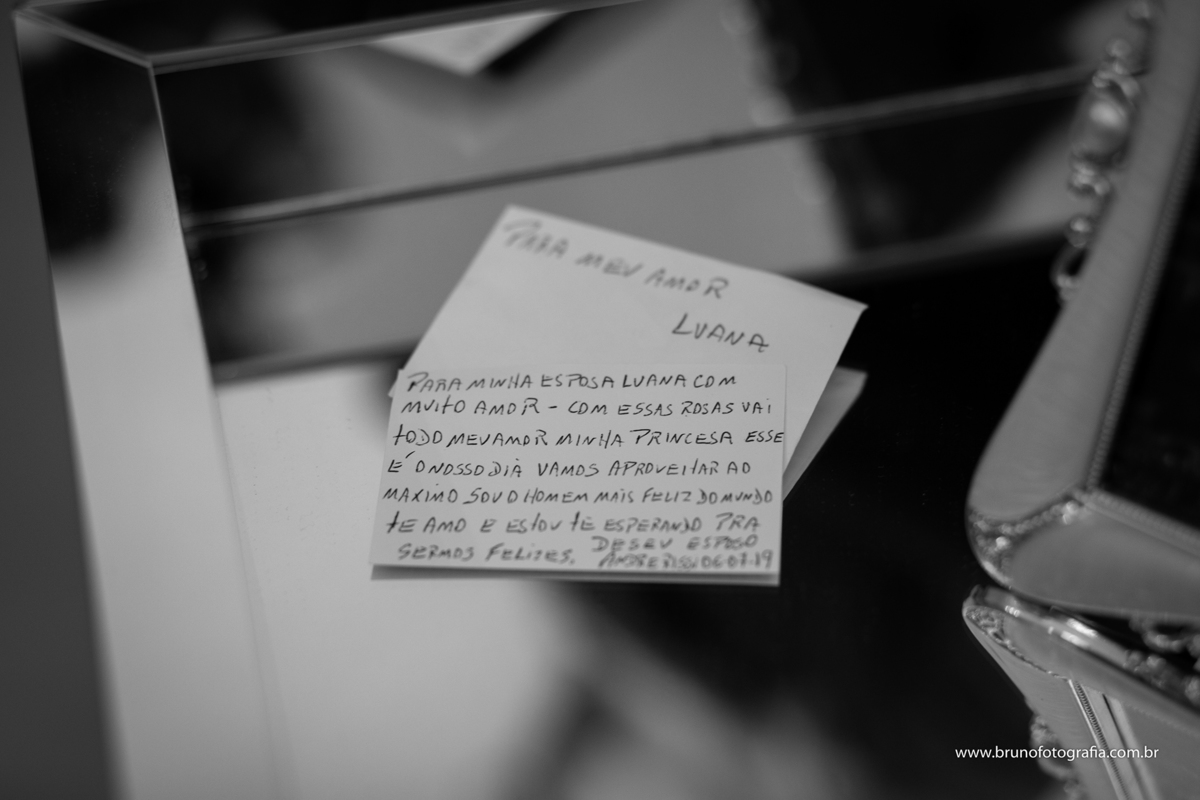 PARA MEU AMOR
LUANA
PARA MINHA ESPOSA LUANA COM
MUITO AMOR - COM ESSAS ROSAS VAI
TODO MEU AMOR MINHA PRINCESA ESSE
É O NOSSO DIA VAMOS APROVEITAR AO
MAXIMO SOU O HOMEM MAIS FELIZ DO MUNDO
TE AMO E ESTOU TE ESPERANDO PRA
SERMOS FELIZES. DE SEU ESPOSO
06.07.19
www.brunofotografia.com.br